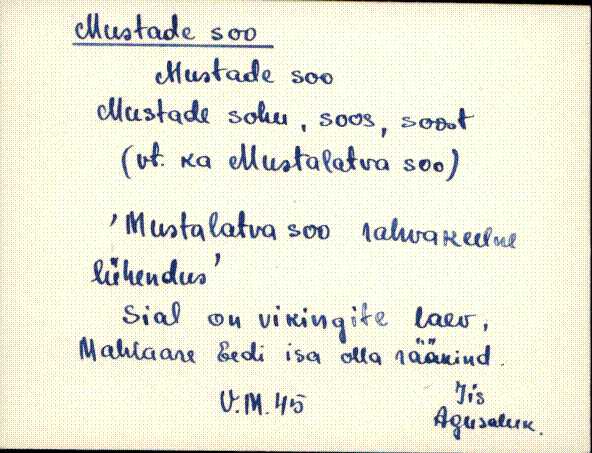 Mustade soo
Mustade soo
Mustade sohu, soos, soost
(vt. ka Mustalatva soo)
'Mustalatva soo rahvakeelne
lühendus'
Sial on vikingite laev,
Mahlaare Eedi isa olla rääkind.
V.M. 45
Jis
Agusalu k.